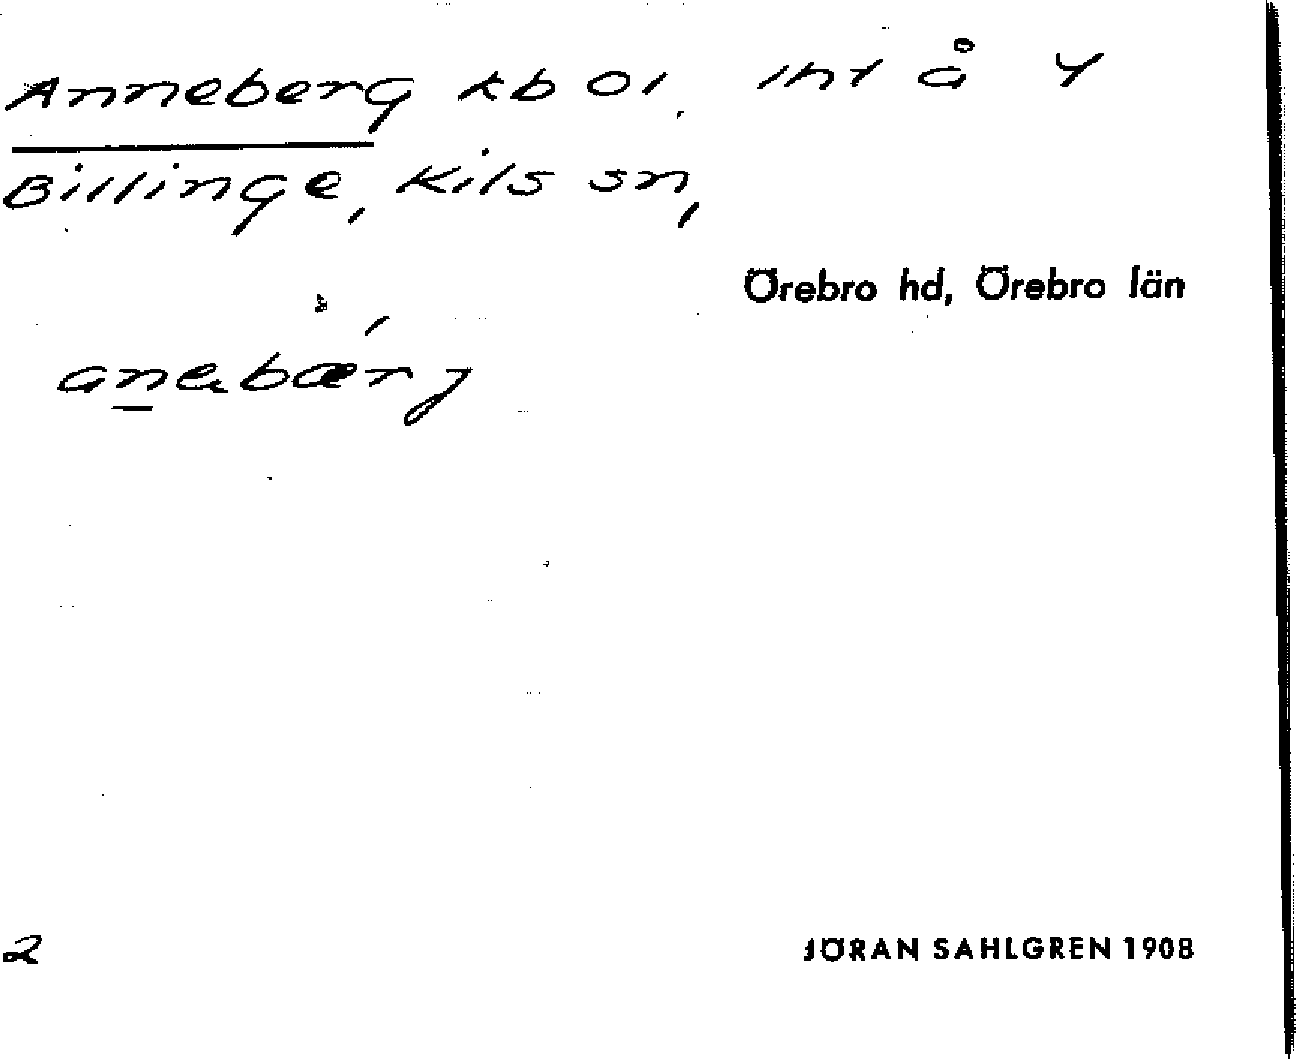 Anneberg kb 01. Iht å Y
Billinge, Kils sn,
Örebro hd, Örebro län
anebærj
2
JÖRAN SAHLGREN 1908